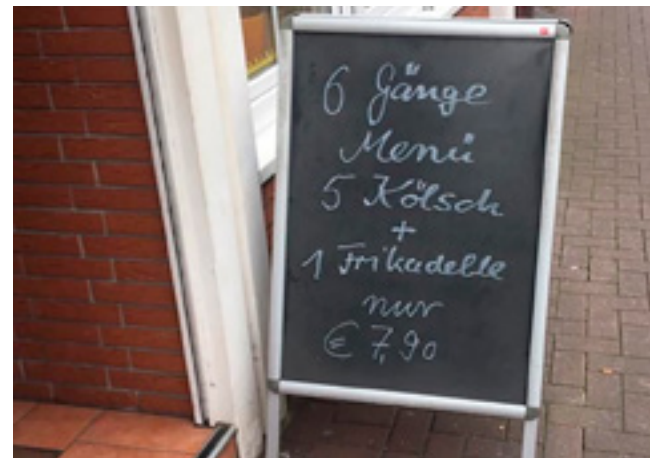 6 Gänge
Menü
5 Kölsch
+
1 Frikadelle
nur
€ 7,90